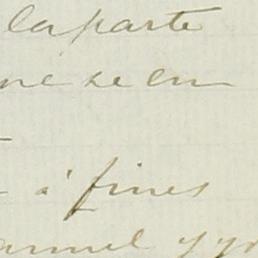 la parte
ne se en
á fines
anuel y yo